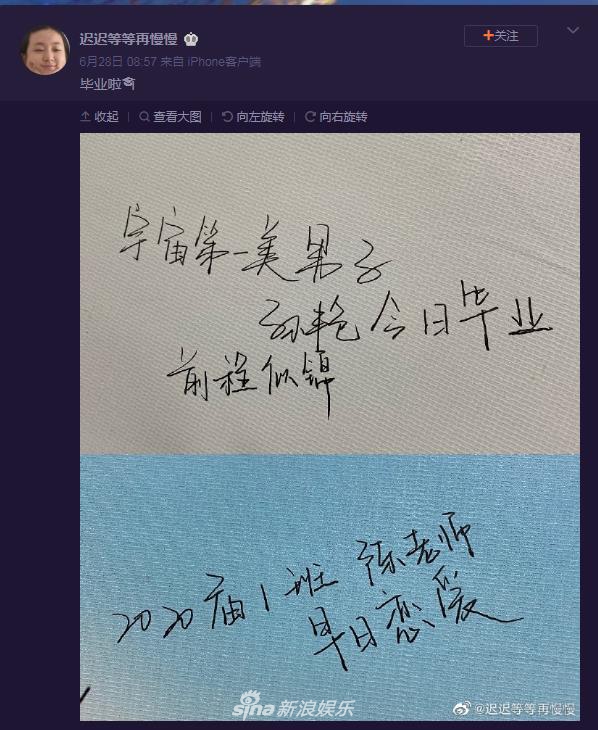 迟迟等等再慢慢
+关注
6月28日 08:57 来自 iPhone客户端
毕业啦🎓
收起 查看大图 向左旋转 向右旋转
宇宙第一美男子
孙艳今日毕业
前程似锦
2020届1班 陈老师
早日恋爱
sina新浪娱乐
@迟迟等等再慢慢